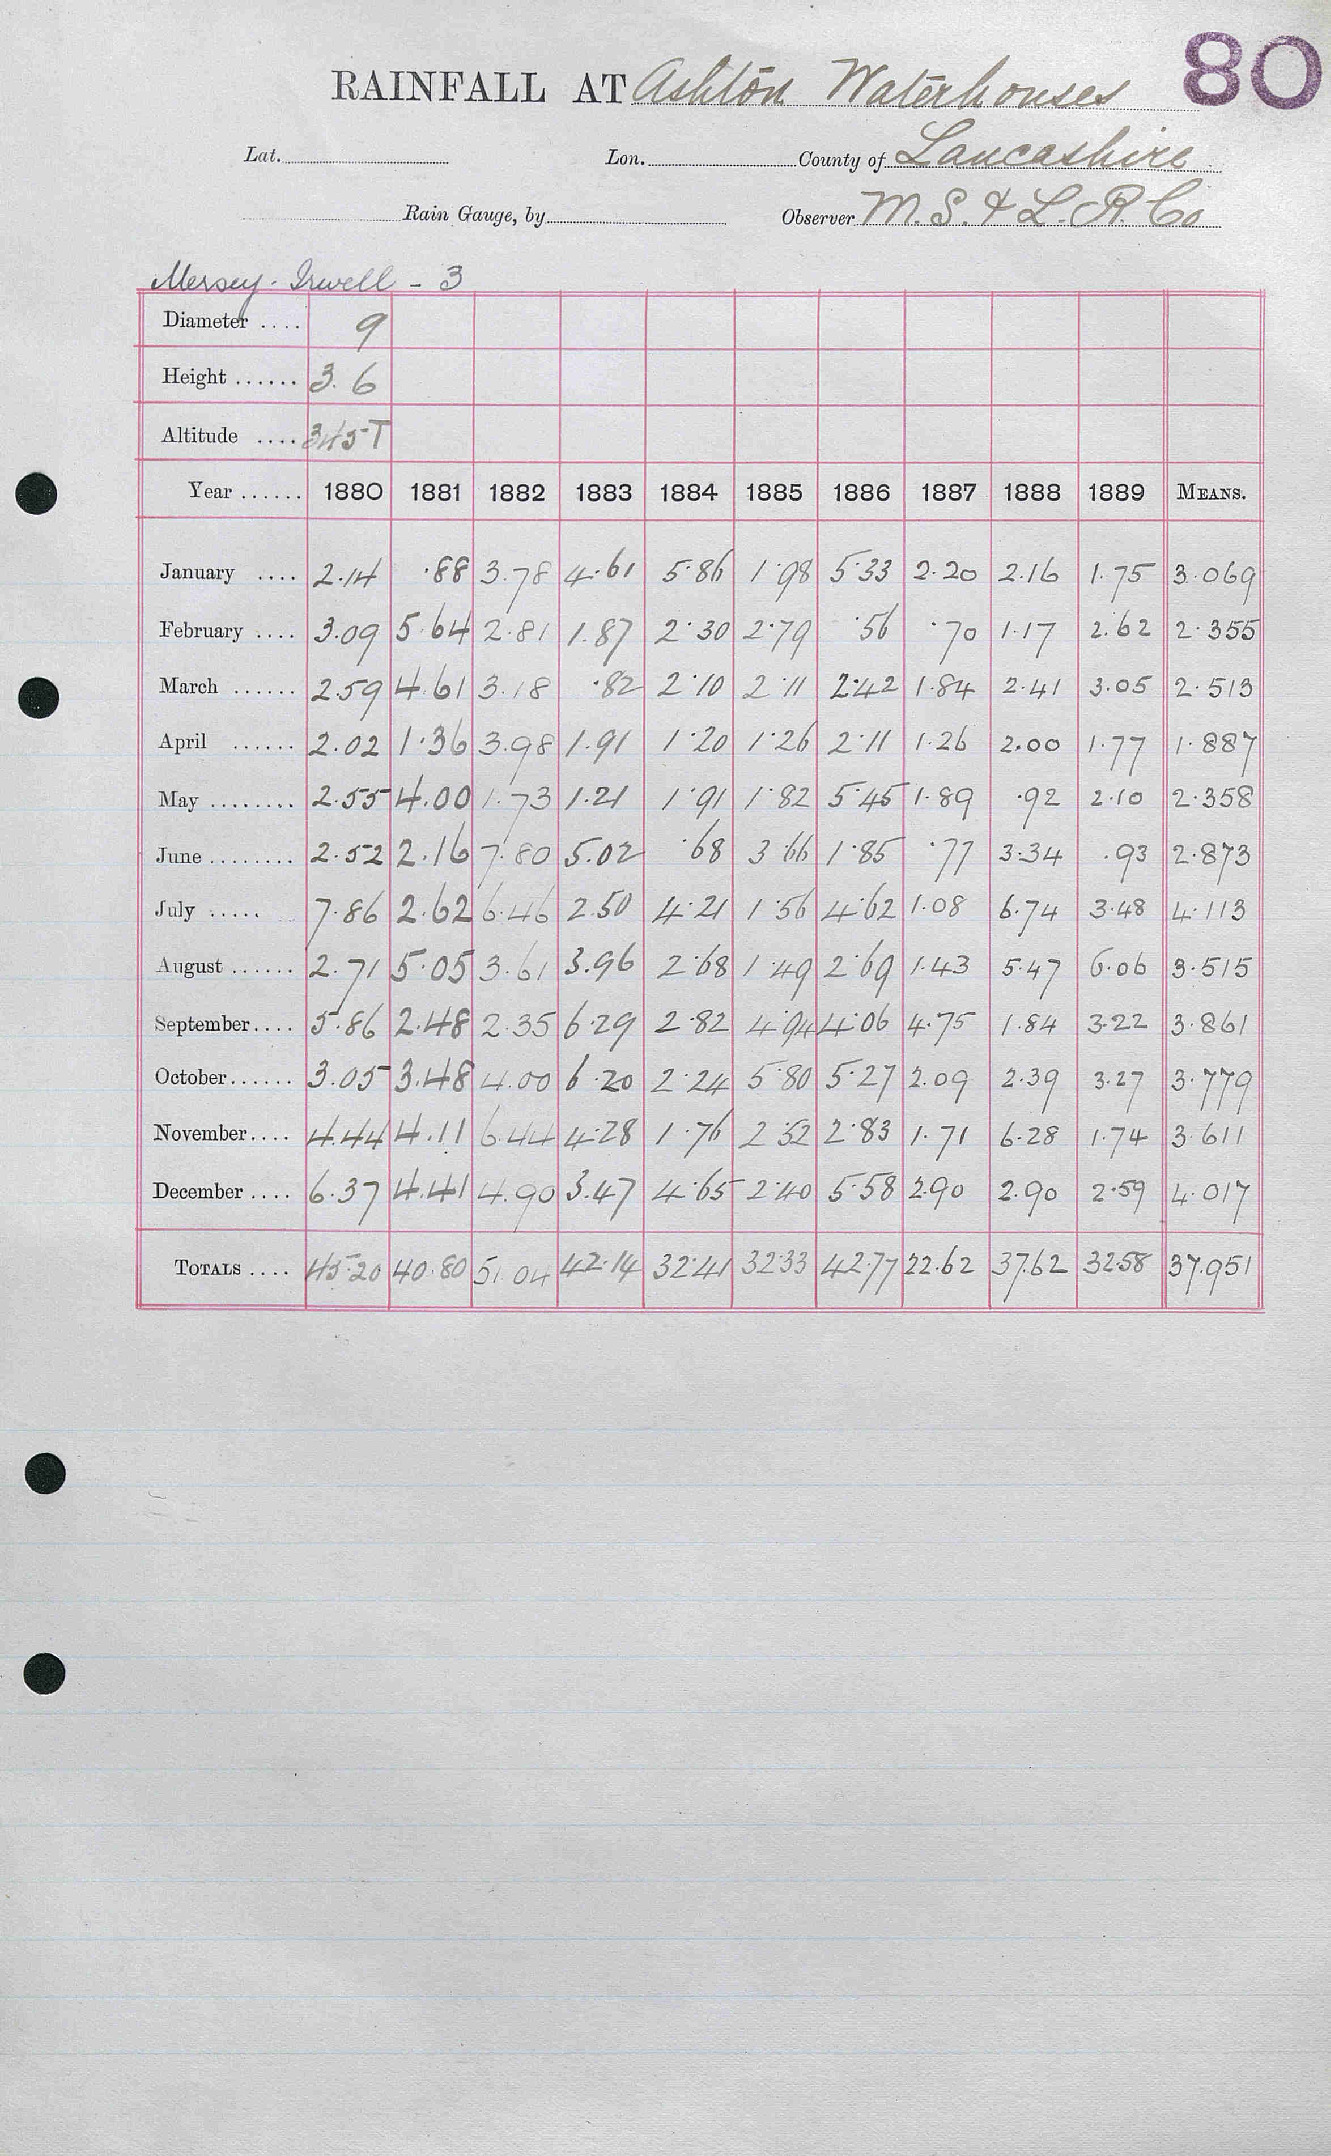 80
RAINFALL AT Ashton Waterhouses
Lat. Lon. County of Lancashire
Rain Gauge, by Observer M. S. & L. R. Co
Mersey. Irwell - 3
Diameter .... 9
Height ...... 3.6
Altitude .... 345 T
Year ...... 1880 1881 1882 1883 1884 1885 1886 1887 1888 1889 MEANS.
January .... 2.14 .88 3.78 4.61 5.86 1.98 5.33 2.20 2.16 1.75 3.069
February .... 3.09 5.64 2.81 1.87 2.30 2.79 .56 .70 1.17 2.62 2.355
March ...... 2.59 4.61 3.18 .82 2.10 2.11 2.42 1.84 2.41 3.05 2.513
April ...... 2.02 1.36 3.98 1.91 1.20 1.26 2.11 1.26 2.00 1.77 1.887
May ........ 2.55 4.00 1.73 1.21 1.91 1.82 5.45 1.89 .92 2.10 2.358
June ........ 2.52 2.16 7.80 5.02 .68 3.66 1.85 .77 3.34 .93 2.873
July ..... 7.86 2.62 6.46 2.50 4.21 1.56 4.62 1.08 6.74 3.48 4.113
August ...... 2.71 5.05 3.61 3.96 2.68 1.49 2.69 1.43 5.47 6.06 3.515
September.... 5.86 2.48 2.35 6.29 2.82 4.94 4.06 4.75 1.84 3.22 3.861
October...... 3.05 3.48 4.00 6.20 2.24 5.80 5.27 2.09 2.39 3.27 3.779
November.... 4.44 4.11 6.44 4.28 1.76 2.52 2.83 1.71 6.28 1.74 3.611
December .... 6.37 4.41 4.90 3.47 4.65 2.40 5.58 2.90 2.90 2.59 4.017
TOTALS .... 45.20 40.80 51.04 42.14 32.41 32.33 42.77 22.62 37.62 32.58 37.951